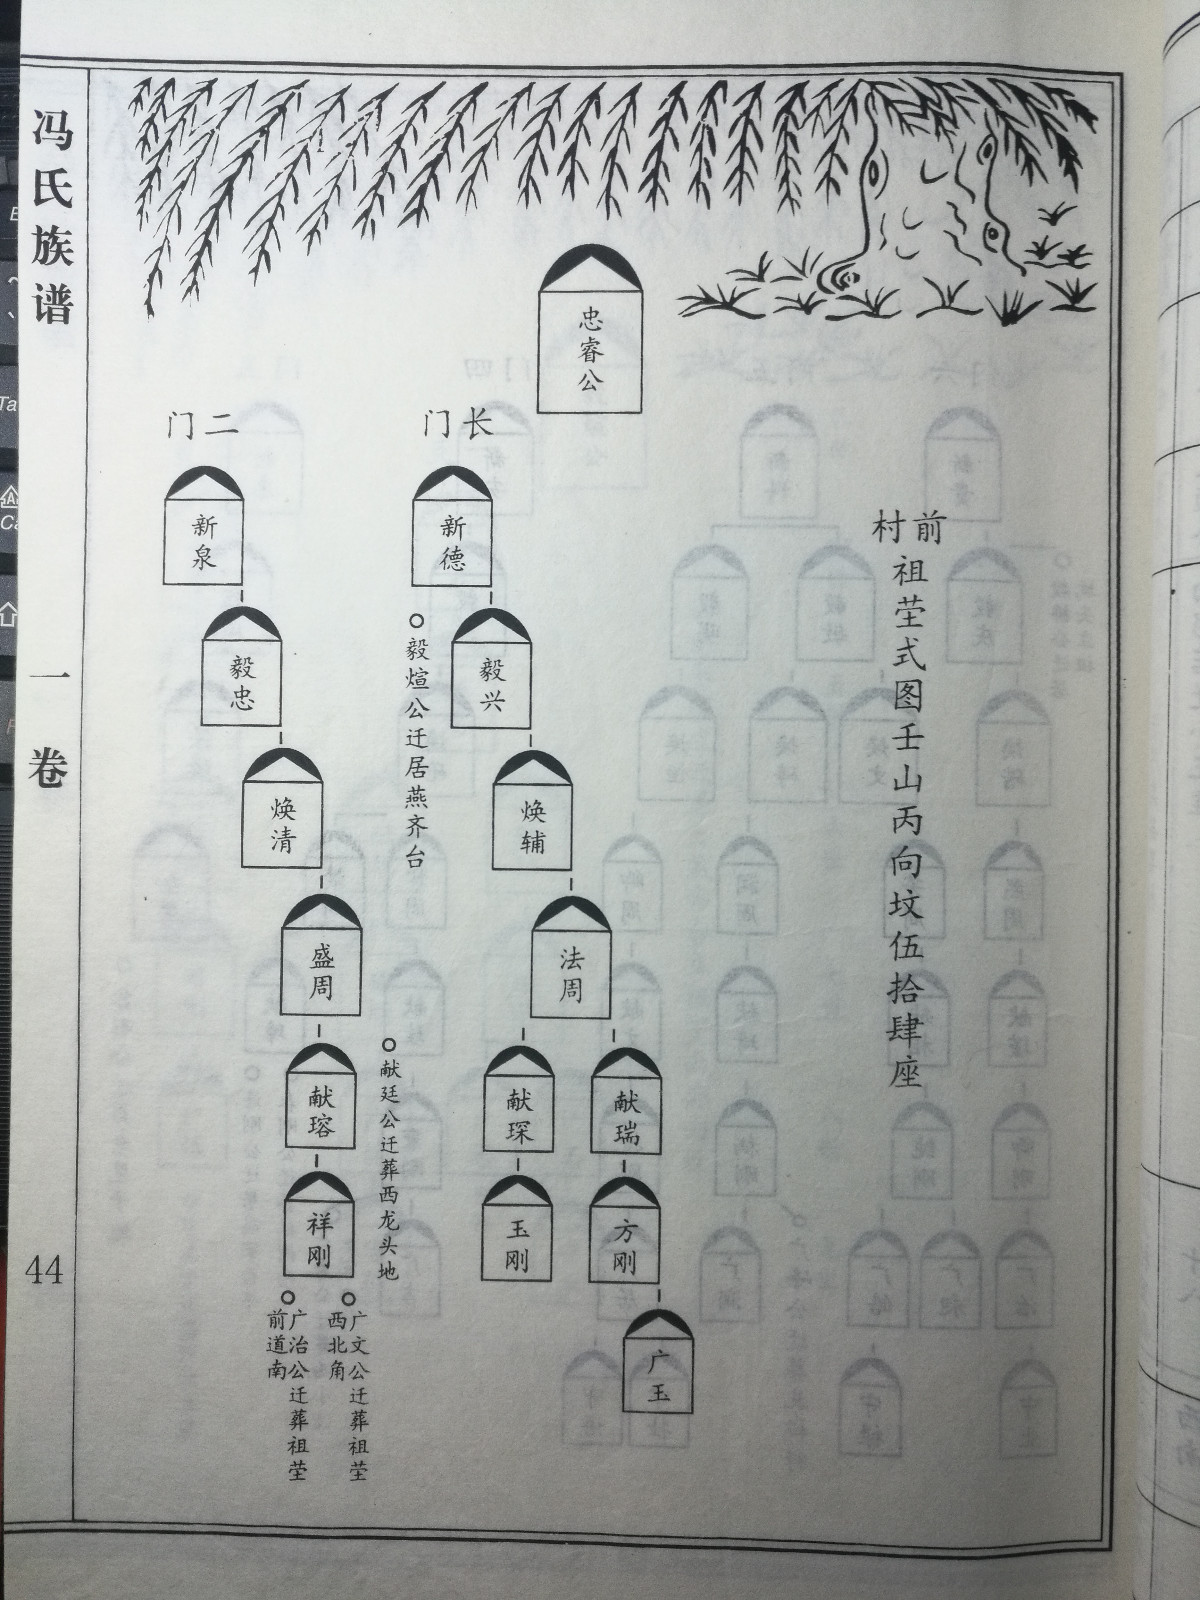 冯氏族谱
一卷
44
忠睿公
前村
祖茔式图壬山丙向坟伍拾肆座
长门
新德
毅兴
毅煊公迁居燕齐台
焕辅
法周
献瑞
献琛
方刚
玉刚
广玉
二门
新泉
毅忠
焕清
盛周
献瑢
献廷公迁葬西龙头地
祥刚
广文公迁葬祖茔
西北角
广治公迁葬祖茔
前道南